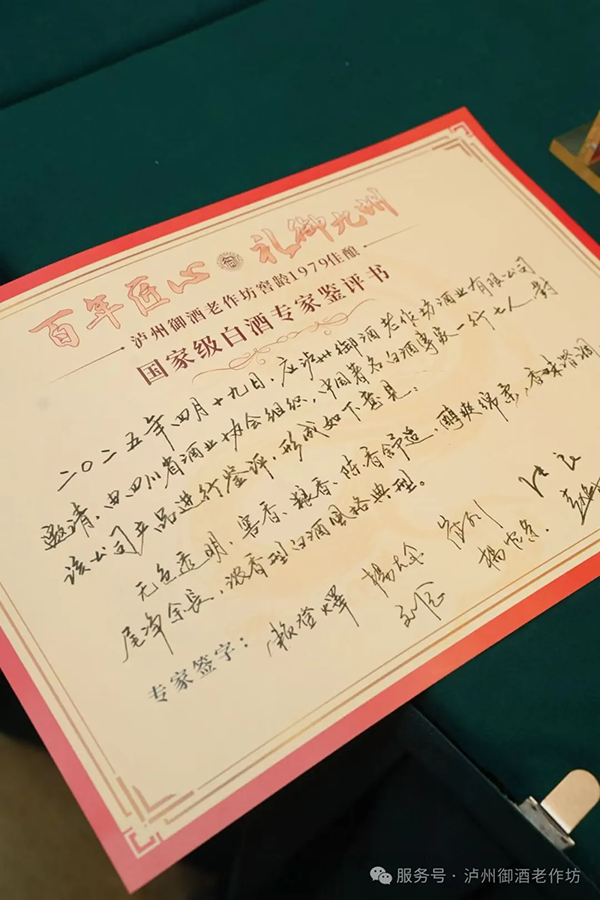 百年匠心 礼御九州
泸州御酒老作坊窖龄1979佳酿
国家级白酒专家鉴评书
二〇二五年四月十九日，应泸州御酒老作坊酒业有限公司
邀请，由四川省酒业协会组织，中国著名白酒专家一行七人对
该公司产品进行鉴评，形成如下意见：
无色透明，窖香、粮香、陈香舒适，醇爽绵柔，香味谐调
尾净余长，浓香型白酒风格典型。
专家签字：赖登燡 杨大金
服务号·泸州御酒老作坊